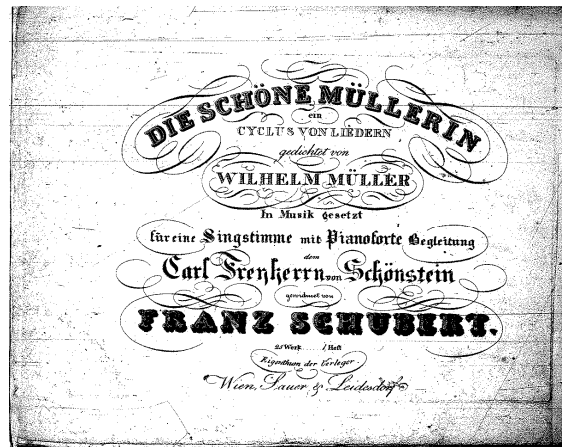 DIE SCHÖNE MÜLLERIN
ein
CYCLUS VON LIEDERN
gedichtet von
WILHELM MÜLLER
In Musik gesetzt
für eine Singstimme mit Pianoforte Begleitung
dem
Carl Freyherrn von Schönstein
gewidmet von
FRANZ SCHUBERT.
25 Werk 1 Heft
Eigenthum der Verleger
Wien, Sauer & Leidesdorf